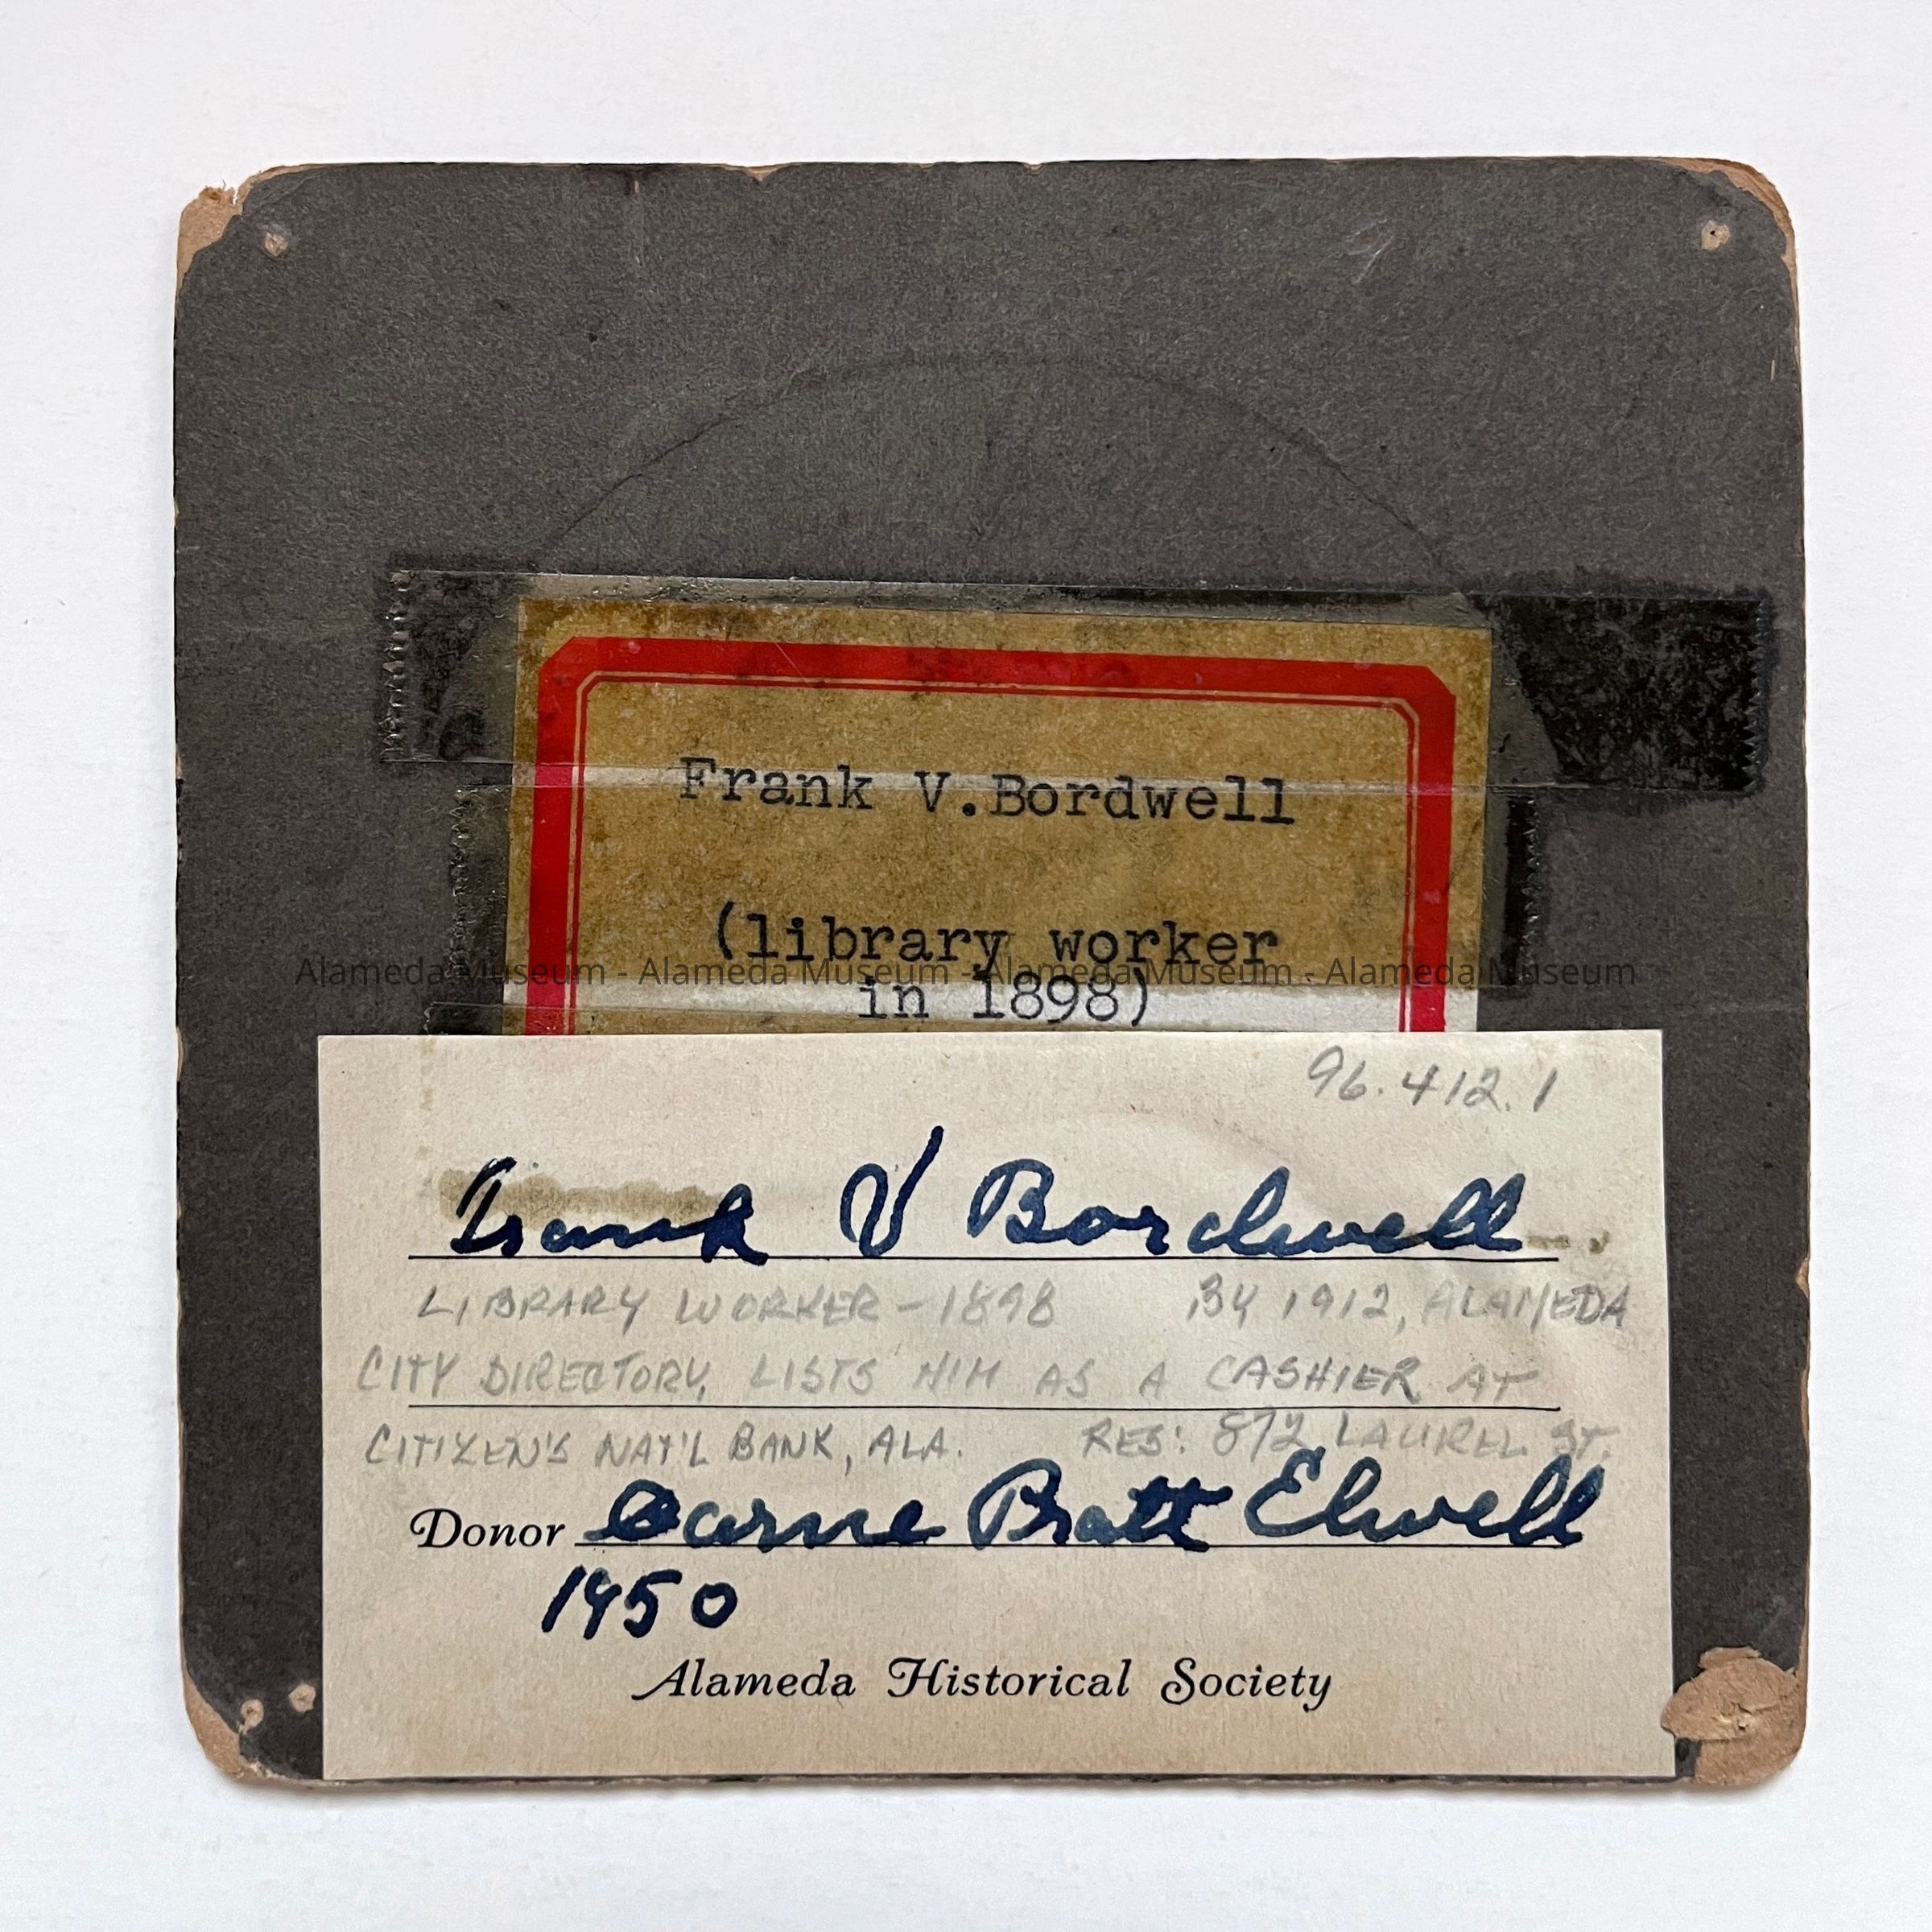 Frank V.Bordwell
(library worker
Alameda Museum - Alameda Museum - Alameda Museum - Alameda Museum
in 1898)
96.412.1
Frank V Bordwell
LIBRARY WORKER - 1898 BY 1912, ALAMEDA
CITY DIRECTORY, LISTS HIM AS A CASHIER AT
CITIZEN'S NAT'L BANK, ALA. RES: 872 LAUREL ST.
Donor Pratt Elwell
1950
Alameda Historical Society